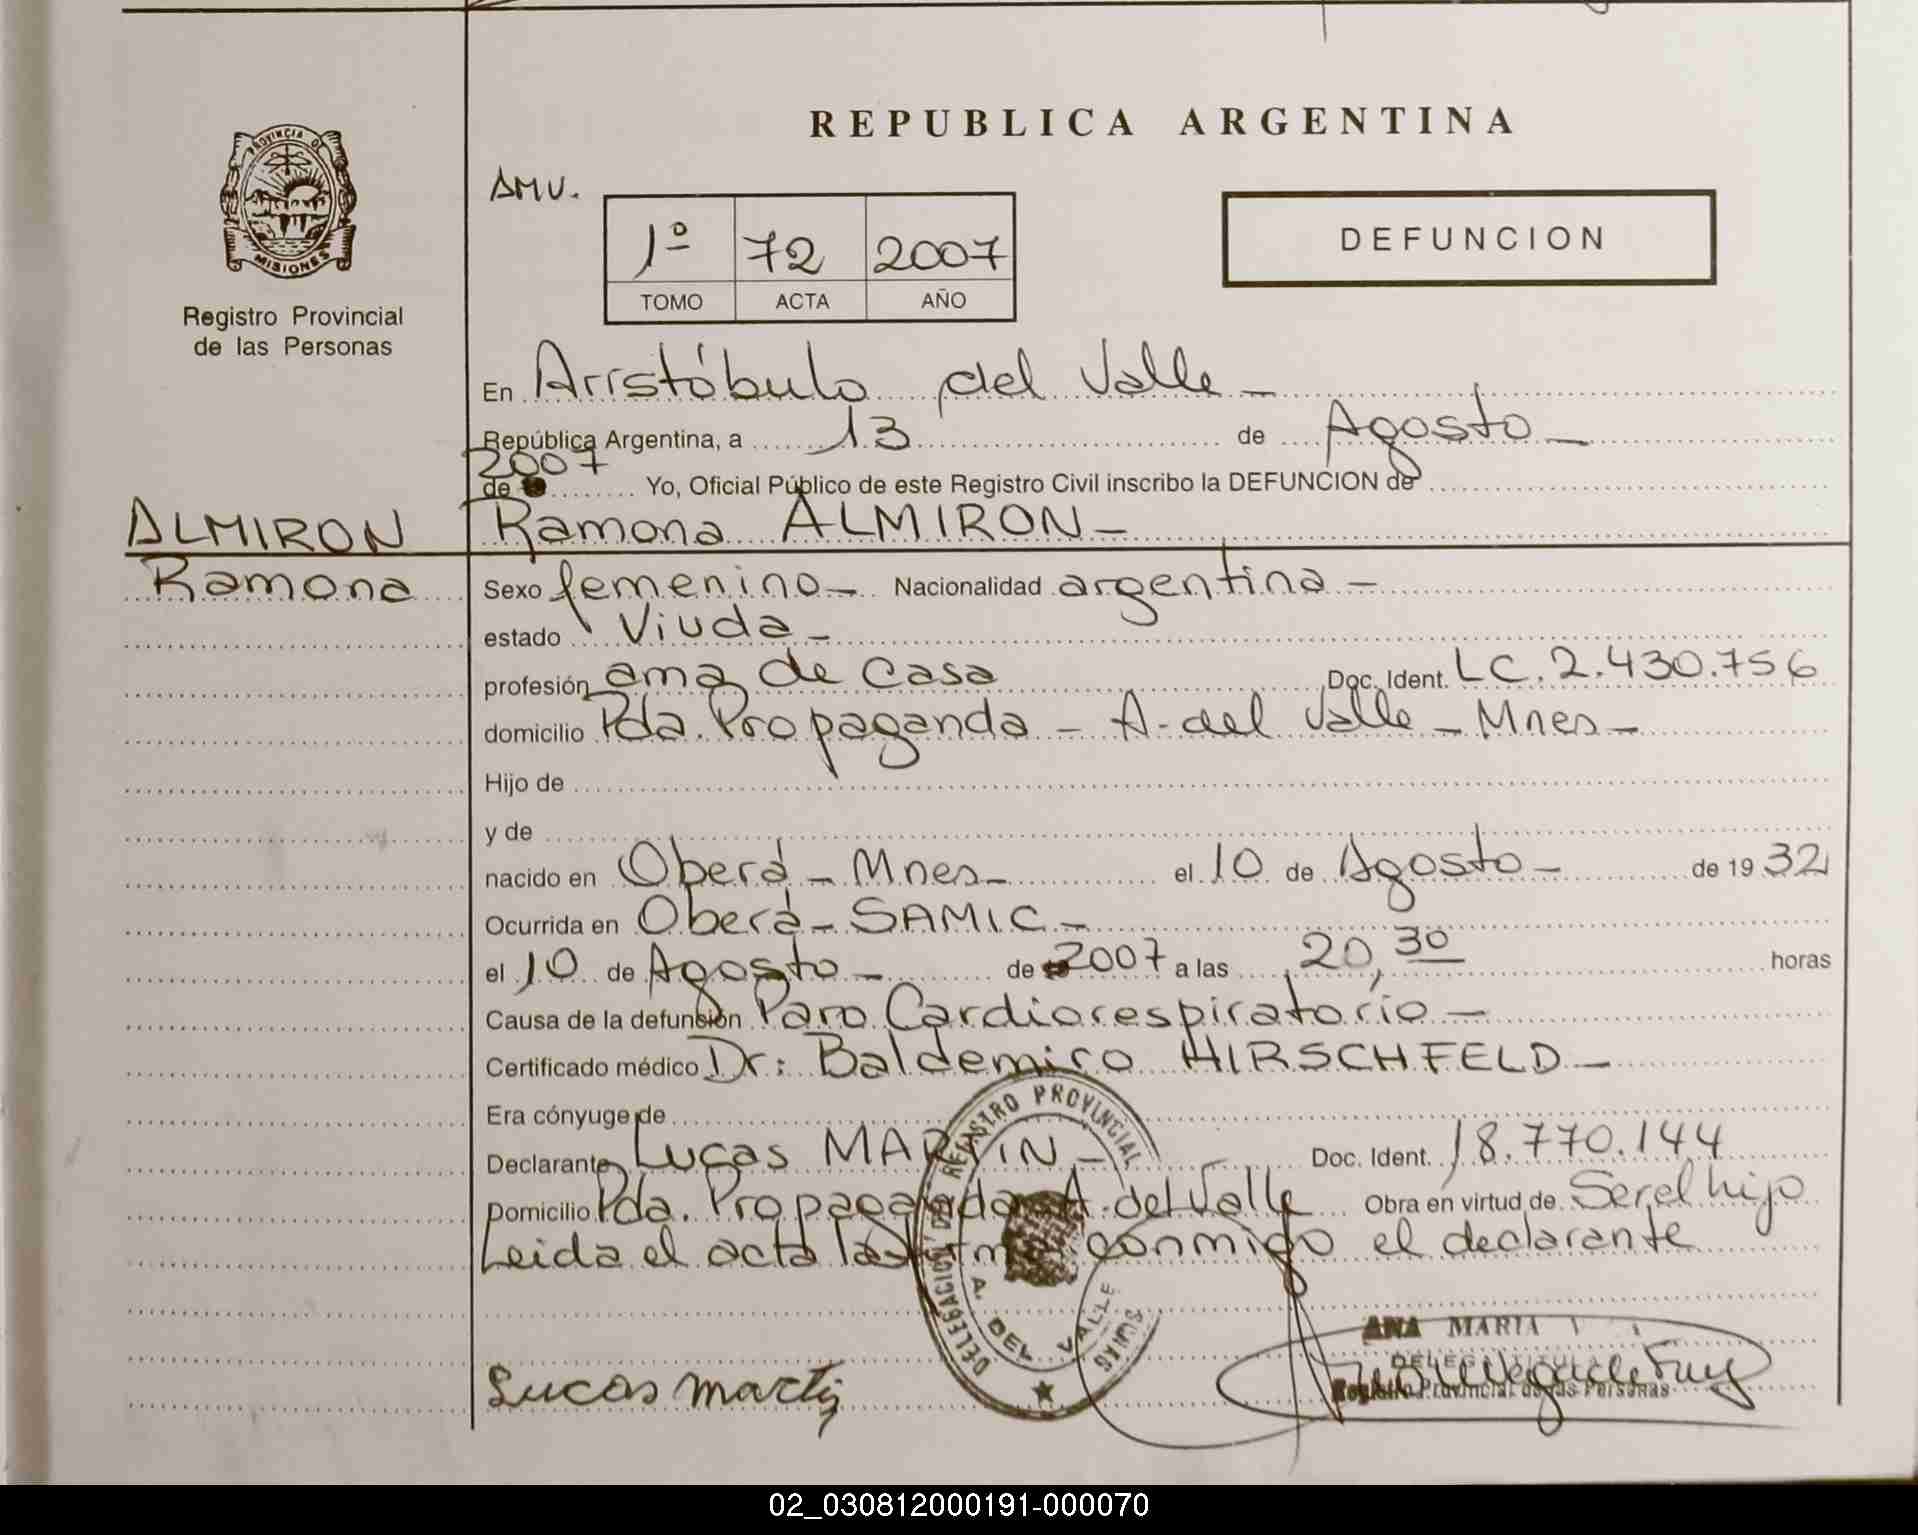 REPUBLICA ARGENTINA
PROVINCIA DE
MISIONES
Registro Provincial
de las Personas
AMV.
1º 72 2007
TOMO ACTA AÑO
DEFUNCION
En Arístóbulo del Valle -
República Argentina, a 13 de Agosto -
2007
de Yo, Oficial Público de este Registro Civil inscribo la DEFUNCION de
ALMIRON
Ramona
Ramona ALMIRON -
Sexo femenino - Nacionalidad argentina -
estado Viuda -
profesión ama de casa Doc. Ident. LC. 2.430.756
domicilio Pda. Propaganda - A. del Valle - Mnes -
Hijo de
y de
nacido en Oberá - Mnes - el 10 de Agosto - de 19 32
Ocurrida en Oberá - SAMIC -
el 10 de Agosto - de 2007 a las 20,30 horas
Causa de la defunción Paro Cardiorespiratorio -
Certificado médico Dr: Baldemiro HIRSCHFELD -
Era cónyuge de
Declarante Lucas MARTIN - Doc. Ident. 18.770.144
Domicilio Pda. Propaganda A. del Valle Obra en virtud de Ser el hijo
Leida el acta la conmigo el declarante
DELEGACION DEL REGISTRO PROVINCIAL
A. DEL VALLE
Lucas Martin
ANA MARIA
Registro Provincial de las Personas
02_030812000191-000070